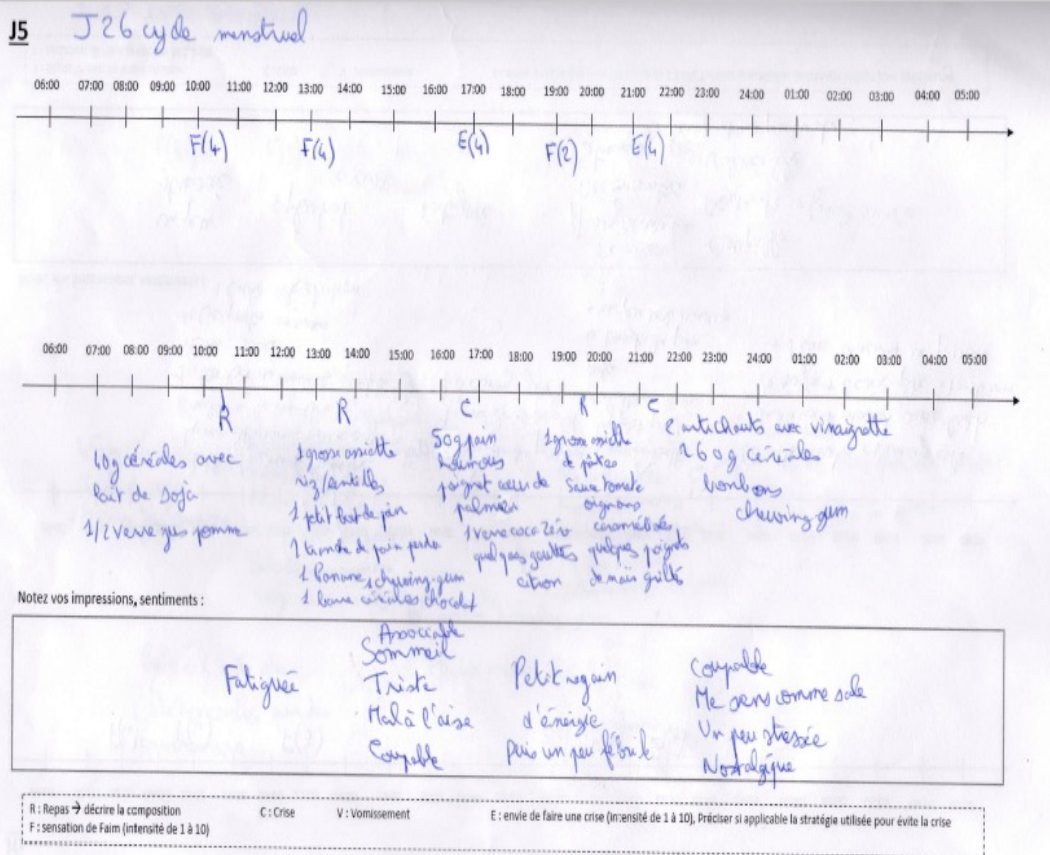 J5 J26 cycle menstruel
06:00 07:00 08:00 09:00 10:00 11:00 12:00 13:00 14:00 15:00 16:00 17:00 18:00 19:00 20:00 21:00 22:00 23:00 24:00 01:00 02:00 03:00 04:00 05:00
F(4) F(4) E(4) F(2) E(4)
06:00 07:00 08:00 09:00 10:00 11:00 12:00 13:00 14:00 15:00 16:00 17:00 18:00 19:00 20:00 21:00 22:00 23:00 24:00 01:00 02:00 03:00 04:00 05:00
R R C R C
40g céréales avec
lait de soja
1/2 verre jus pomme
1 grosse assiette
riz/lentilles
1 petit bout de pain
1 tranche de pain
1 banane, chewing-gum
1 barre céréales chocolat
50g pain
houmous
coeur de
palmier
1 verre coca Zéro
quelques gouttes
citron
1 grosse assiette
de pâtes
sauce tomate
oignons
quelques poignées
de maïs grillé
2 artichauts avec vinaigrette
160g céréales
bonbons
chewing gum
Notez vos impressions, sentiments :
Fatiguée
Sommeil
Triste
Mal à l'aise
Coupable
Petit regain
d'énergie
puis un peu fébrile
Coupable
Me sens comme sale
Un peu stressée
Nostalgique
R : Repas → décrire la composition C : Crise V : Vomissement E : envie de faire une crise (intensité de 1 à 10), Préciser si applicable la stratégie utilisée pour évite la crise
F : sensation de Faim (intensité de 1 à 10)